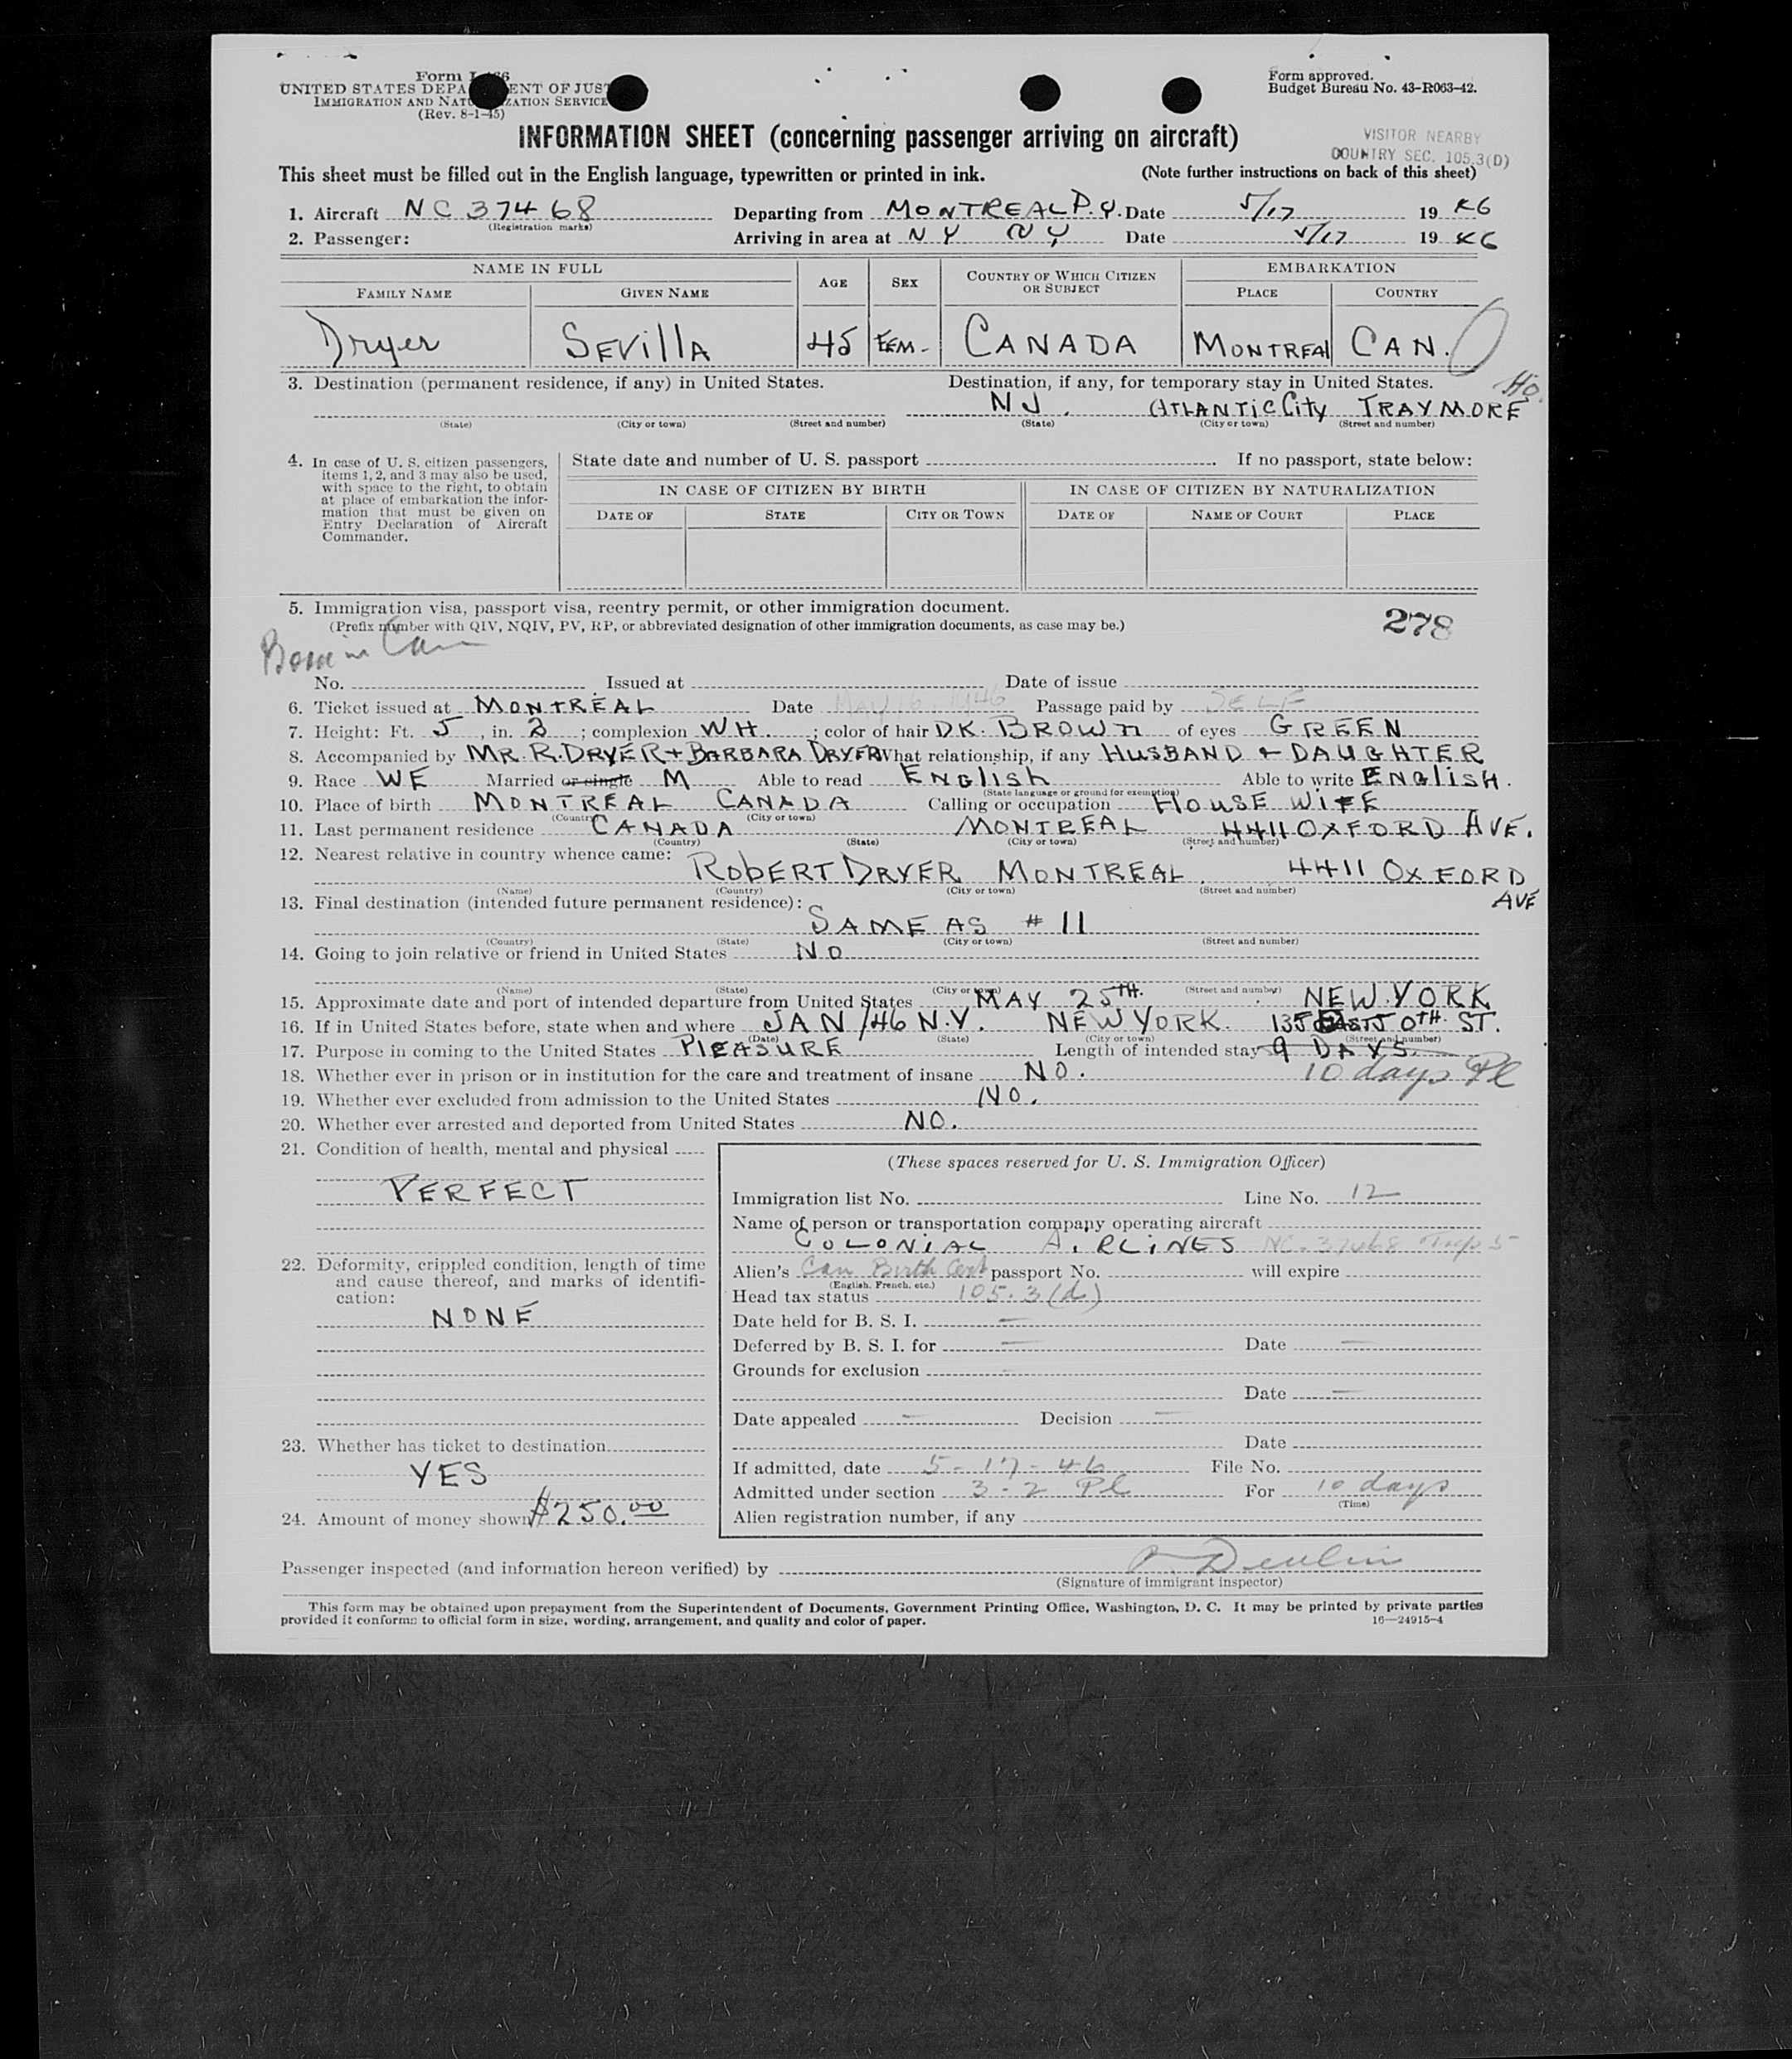 Form I-466
UNITED STATES DEPARTMENT OF JUSTICE
IMMIGRATION AND NATURALIZATION SERVICE
(Rev. 8-1-45)
Form approved.
Budget Bureau No. 43-R063-42.
INFORMATION SHEET (concerning passenger arriving on aircraft)
VISITOR NEARBY
COUNTRY SEC. 105.3(D)
This sheet must be filled out in the English language, typewritten or printed in ink. (Note further instructions on back of this sheet)
1. Aircraft NC 37468 Departing from MONTREAL P.Q. Date 5/17 19 46
(Registration marks)
2. Passenger: Arriving in area at NY NY Date 5/17 19 46
NAME IN FULL AGE SEX COUNTRY OF WHICH CITIZEN OR SUBJECT EMBARKATION
FAMILY NAME GIVEN NAME PLACE COUNTRY
Dryer SEVIllA 45 FEM- CANADA MONTREAl CAN.
3. Destination (permanent residence, if any) in United States. Destination, if any, for temporary stay in United States.
NJ. ATLANTiC CiTy TRAYMORE Ho.
(State) (City or town) (Street and number) (State) (City or town) (Street and number)
4. In case of U. S. citizen passengers, items 1, 2, and 3 may also be used, with space to the right, to obtain at place of embarkation the information that must be given on Entry Declaration of Aircraft Commander.
State date and number of U. S. passport . If no passport, state below:
IN CASE OF CITIZEN BY BIRTH IN CASE OF CITIZEN BY NATURALIZATION
DATE OF STATE CITY OR TOWN DATE OF NAME OF COURT PLACE
5. Immigration visa, passport visa, reentry permit, or other immigration document.
(Prefix number with QIV, NQIV, PV, RP, or abbreviated designation of other immigration documents, as case may be.)
278
Born in Can
No. Issued at Date of issue
6. Ticket issued at MONTREAL Date May 16 1946 Passage paid by SELF
7. Height: Ft. 5, in. 2; complexion WH.; color of hair DK. BROWN of eyes GREEN
8. Accompanied by MR. R. DRYER + BARBARA DRYER What relationship, if any HUSBAND + DAUGHTER
9. Race WE Married or single M Able to read ENGlISH Able to write ENGLISH.
(State language or ground for exemption)
10. Place of birth MONTREAL CANADA Calling or occupation HOUSE WIFE
(Country) (City or town)
11. Last permanent residence CANADA MONTREAL 4411 OXFORD AVE.
(Country) (State) (City or town) (Street and number)
12. Nearest relative in country whence came: ROBERT DRYER MONTREAL. 4411 OXFORD AVE
(Name) (Country) (City or town) (Street and number)
13. Final destination (intended future permanent residence):
SAME AS # 11
(Country) (State) (City or town) (Street and number)
14. Going to join relative or friend in United States NO
(Name) (State) (City or town) (Street and number)
15. Approximate date and port of intended departure from United States MAY 25TH. NEW YORK
16. If in United States before, state when and where JAN /46 N.Y. NEW YORK. 135 EAST 50TH. ST.
(Date) (State) (City or town) (Street and number)
17. Purpose in coming to the United States PlEASURE Length of intended stay 9 DAYS
18. Whether ever in prison or in institution for the care and treatment of insane NO. 10 days Pl
19. Whether ever excluded from admission to the United States NO.
20. Whether ever arrested and deported from United States NO.
21. Condition of health, mental and physical
PERFECT
22. Deformity, crippled condition, length of time and cause thereof, and marks of identification:
NONE
23. Whether has ticket to destination
YES
24. Amount of money shown $250.00
(These spaces reserved for U. S. Immigration Officer)
Immigration list No. Line No. 12
Name of person or transportation company operating aircraft
COLONIAL AiRLINES NC-37468 Trip 5
Alien's Can Birth Cert passport No. will expire
(English, French, etc.)
Head tax status 105.3(d)
Date held for B. S. I. —
Deferred by B. S. I. for — Date —
Grounds for exclusion -
Date —
Date appealed — Decision —
Date
If admitted, date 5-17-46 File No.
Admitted under section 3-2 Pl For 10 days
(Time)
Alien registration number, if any
Passenger inspected (and information hereon verified) by Devlin
(Signature of immigrant inspector)
This form may be obtained upon prepayment from the Superintendent of Documents, Government Printing Office, Washington, D. C. It may be printed by private parties
provided it conforms to official form in size, wording, arrangement, and quality and color of paper. 16—24915-4